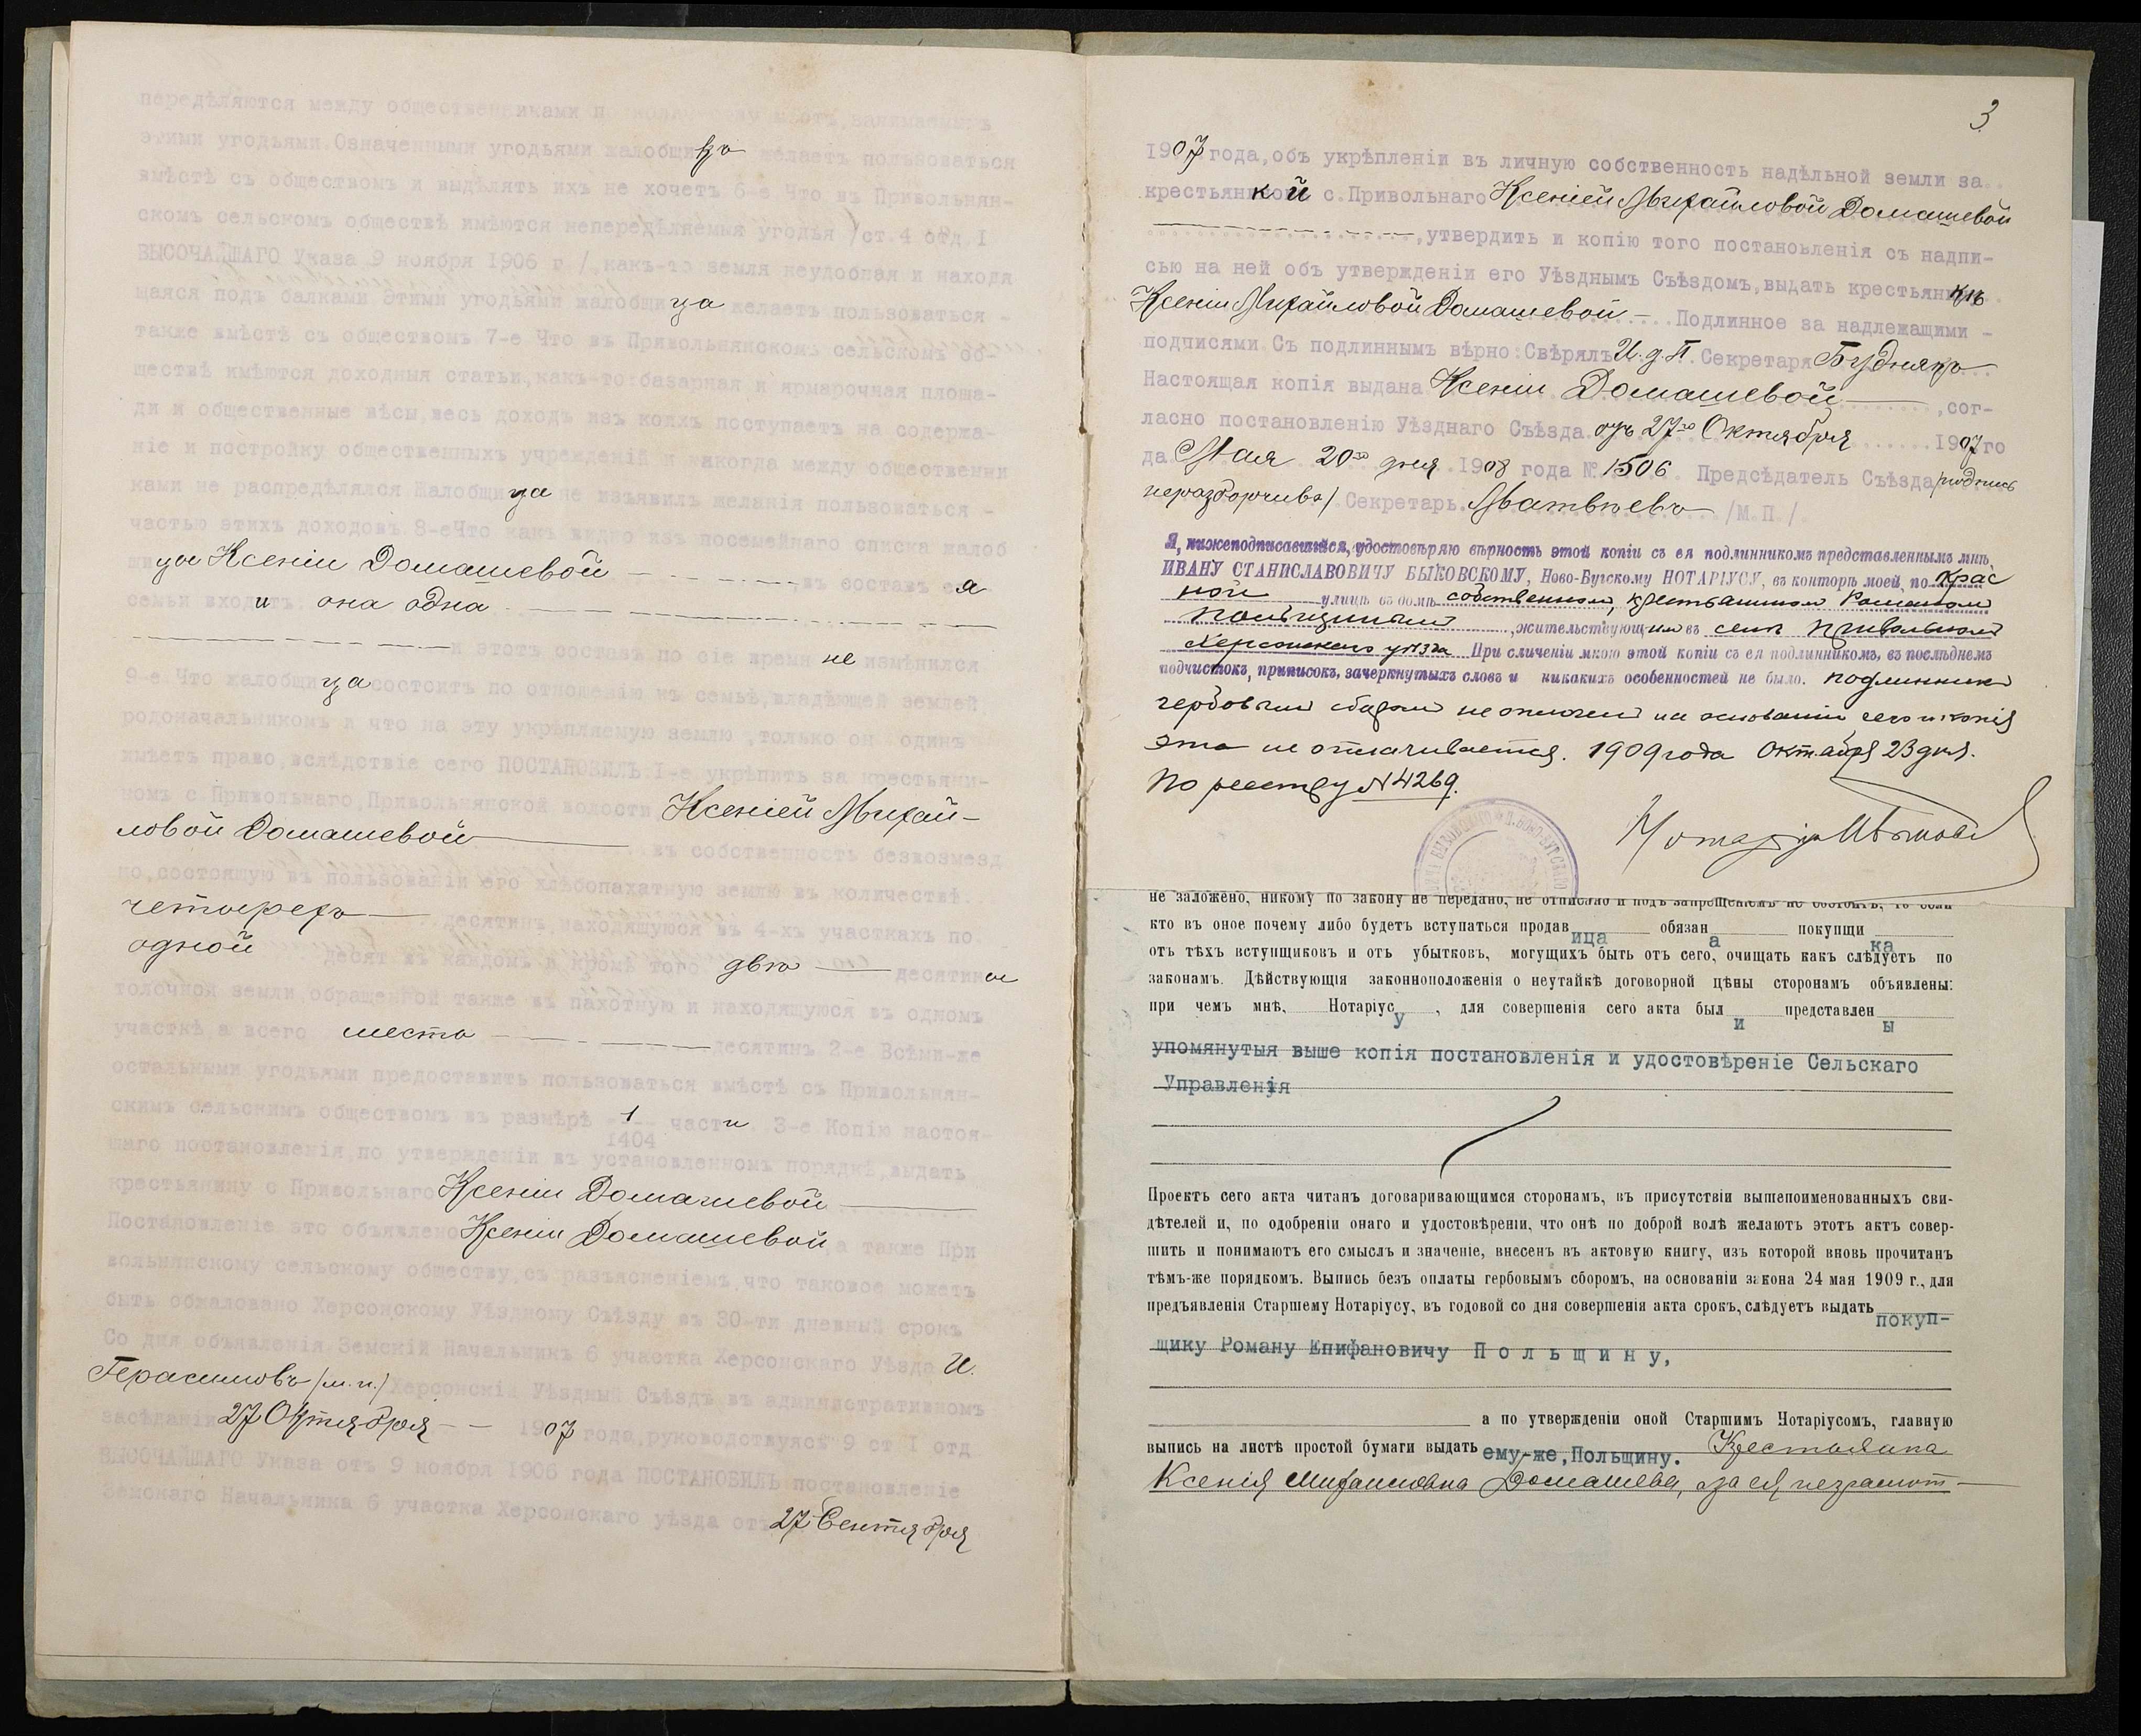 передѣляются между общественниками по количеству лѣтъ, занимаемымъ
этими угодьями. Означенными угодьями жалобщикъ желаетъ пользоваться
вмѣстѣ съ обществомъ и выдѣлять ихъ не хочетъ 6-е Что въ Привольнян-
скомъ сельскомъ обществѣ имѣются непередѣляемыя угодья /ст. 4 отд I
ВЫСОЧАЙШАГО Указа 9 ноября 1906 г /, какъ-то земля неудобная и находя
щаяся подъ балками Этими угодьями жалобщица желаетъ пользоваться -
также вмѣстѣ съ обществомъ 7-е Что въ Привольнянскомъ сельскомъ об-
ществѣ имѣются доходныя статьи, какъ-то: базарная и ярмарочная площа-
ди и общественные вѣсы, весь доходъ изъ коихъ поступаетъ на содержа-
ніе и постройку общественныхъ учрежденій и никогда между общественни
ками не распредѣлялся Жалобщица не изъявилъ желанія пользоваться -
частью этихъ доходовъ. 8-е Что какъ видно изъ посемейнаго списка жалоб
щицы Ксеніи Домашевой въ составъ ея
семьи входитъ: и она одна
и этотъ составъ по сіе время не измѣнился
9-е Что жалобщица состоитъ по отношенію къ семьѣ, владѣющей землей
родоначальникомъ и что на эту укрѣпляемую землю, только он одинъ
имѣетъ право, вслѣдствіе сего ПОСТАНОВИЛЪ: I-е укрѣпить за крестьяни-
номъ с. Привольнаго, Привольнянской волости Ксеніей Михай-
ловой Домашевой въ собственность безвозмезд
но, состоящую въ пользованіи его хлѣбопахатную землю въ количествѣ
четырехъ десятинъ, находящуюся въ 4-хъ участкахъ по
одной десят въ каждомъ и кромѣ того двѣ десятины
толочной земли, обращенной также въ пахотную и находящуюся въ одномъ
участкѣ а всего шесть десятинъ 2-е Всѣми-же
остальными угодьями предоставить пользоваться вмѣстѣ съ Привольнян-
скимъ сельскимъ обществомъ въ размѣрѣ 1/1404 части 3-е Копію настоя-
щаго постановленія, по утвержденіи въ установленномъ порядкѣ, выдать
крестьянину с Привольнаго Ксеніи Домашевой
Постановленіе это объявлено Ксеніи Домашевой, а также При
вольнянскому сельскому обществу, съ разъясненіемъ, что таковое можетъ
быть обжаловано Херсонскому Уѣздному Съѣзду въ 30-ти дневный срокъ
Со дня объявленія. Земскій Начальникъ 6 участка Херсонскаго Уѣзда И.
Герасимовъ /м.п./ Херсонскій Уѣздный Съѣздъ въ административномъ
засѣданіи 27 Октября 1907 года, руководствуясь 9 ст I отд
ВЫСОЧАЙШАГО Указа отъ 9 ноября 1906 года ПОСТАНОВИЛЪ постановленіе
Земскаго Начальника 6 участка Херсонскаго уѣзда отъ 27 Сентября
3
1907 года, объ укрѣпленіи въ личную собственность надѣльной земли за
крестьянкой с. Привольнаго Ксеніей Михайловой Домашевой
, утвердить и копію того постановленія съ надпи-
сью на ней объ утвержденіи его Уѣзднымъ Съѣздомъ, выдать крестьянкѣ
Ксеніи Михайловой Домашевой Подлинное за надлежащими -
подписями Съ подлиннымъ вѣрно: Свѣрялъ И. д. П. Секретаря Будникъ
Настоящая копія выдана Ксеніи Домашевой, сог-
ласно постановленію Уѣзднаго Съѣзда отъ 27го Октября 1907 го
да Мая 20го дня 1908 года № 1506 Предсѣдатель Съѣзда /подпись
неразборчива/ Секретарь Матвѣевъ /М. П./
Я, нижеподписавшійся, удостовѣряю вѣрность этой копіи съ ея подлинникомъ представленнымъ мнѣ,
ИВАНУ СТАНИСЛАВОВИЧУ БЫКОВСКОМУ, Ново-Бугскому НОТАРІУСУ, въ конторѣ моей, по Крас
ной улицѣ въ домѣ собственном, крестьянином Романом
Польщиным, жительствующим въ селѣ Привольном
Херсонскаго уѣзда При сличеніи мною этой копіи съ ея подлинникомъ, въ послѣднемъ
подчистокъ, приписокъ, зачеркнутыхъ словъ и никакихъ особенностей не было. Подлинник
гербовым сбором не оплочен на основаніи чего и копія
эта не оплачивается. 1909 года Октября 23 дня.
По реестру № 4269.
Нотаріус Быковс
не заложено, никому по закону не передано, не отписано и подъ запрещеніемъ не состоитъ, то если
кто въ оное почему либо будетъ вступаться продавица обязана покупщика
отъ тѣхъ вступщиковъ и отъ убытковъ, могущихъ быть отъ сего, очищать какъ слѣдуетъ по
законамъ. Дѣйствующія законноположенія о неутайкѣ договорной цѣны сторонамъ объявлены:
при чемъ мнѣ, Нотаріусу, для совершенія сего акта были представлены
упомянутыя выше копія постановленія и удостовѣреніе Сельскаго
Управленія
Проектъ сего акта читанъ договаривающимся сторонамъ, въ присутствіи вышепоименованныхъ сви-
дѣтелей и, по одобреніи онаго и удостовѣреніи, что онѣ по доброй волѣ желаютъ этотъ актъ совер-
шить и понимаютъ его смыслъ и значеніе, внесенъ въ актовую книгу, изъ которой вновь прочитанъ
тѣмъ-же порядкомъ. Выпись безъ оплаты гербовымъ сборомъ, на основаніи закона 24 мая 1909 г., для
предъявленія Старшему Нотаріусу, въ годовой со дня совершенія акта срокъ, слѣдуетъ выдать покуп-
щику Роману Епифановичу Польщину,
а по утвержденіи оной Старшимъ Нотаріусомъ, главную
выпись на листѣ простой бумаги выдать ему-же, Польщину. Крестьянка
Ксенія Михайловна Домашева, а за ея неграмот-